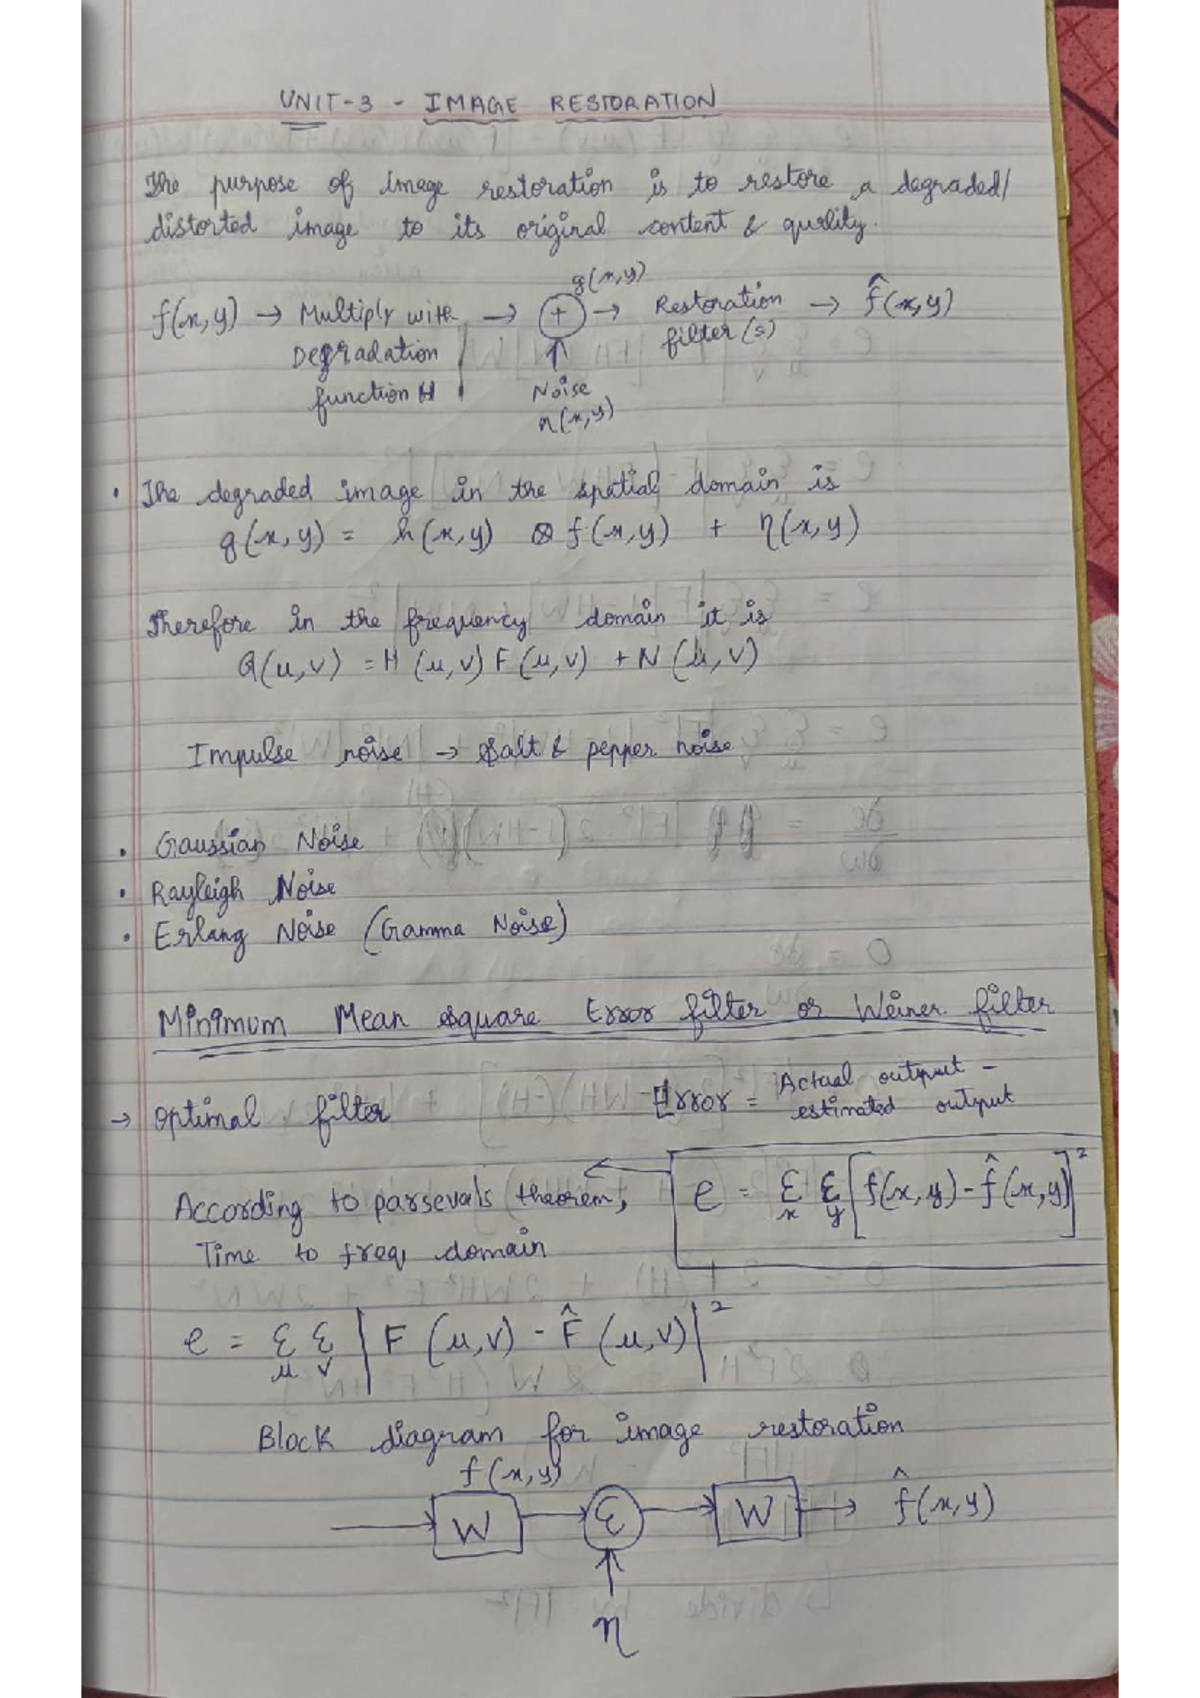 UNIT-3 - IMAGE RESTORATION
The purpose of image restoration is to restore a degraded/
distorted image to its original content & quality.
g(x,y)
f(x,y) → Multiply with → + → Restoration → f̂(x,y)
Degradation filter(s)
function H Noise
n(x,y)
• The degraded image in the spatial domain is
g(x,y) = h(x,y) ⊗ f(x,y) + η(x,y)
Therefore in the frequency domain it is
G(u,v) = H(u,v) F(u,v) + N(u,v)
Impulse noise → Salt & pepper noise
• Gaussian Noise
• Rayleigh Noise
• Erlang Noise (Gamma Noise)
Minimum Mean square Error filter or Weiner filter
→ optimal filter Error = Actual output -
estimated output
According to parsevals theorem, e = Σx Σy [f(x,y) - f̂(x,y)]²
Time to freq. domain
e = Σu Σv |F(u,v) - F̂(u,v)|²
Block diagram for image restoration
f(x,y)
W Σ W → f̂(x,y)
η